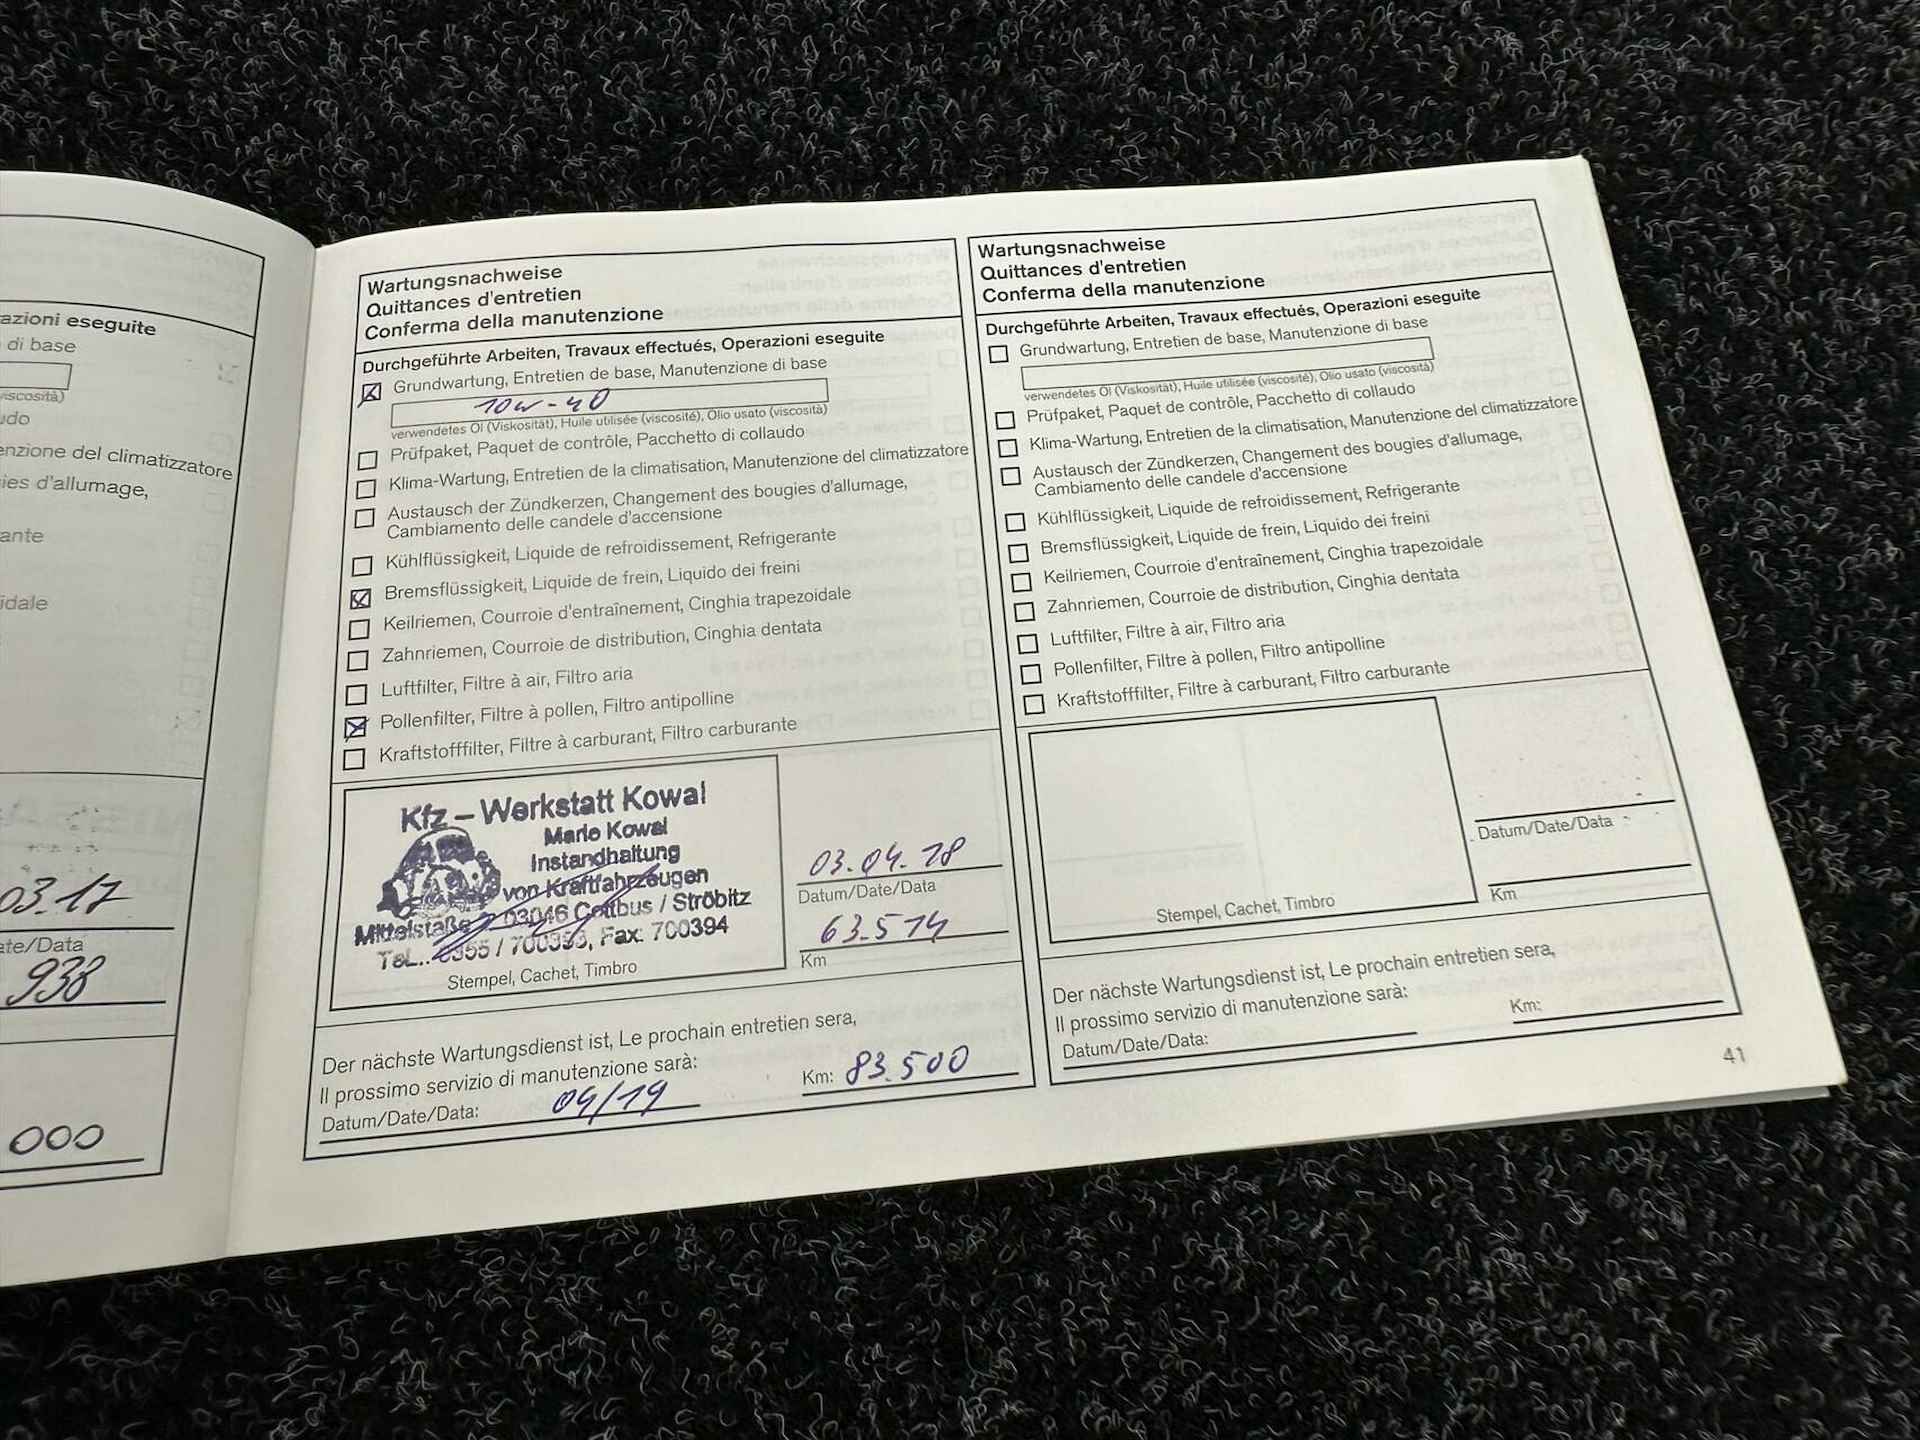 azioni eseguite
di base
viscosità)
udo
enzione del climatizzatore
ies d'allumage,
ante
idale
03.17
ate/Data
938
000
Wartungsnachweise
Quittances d'entretien
Conferma della manutenzione
Durchgeführte Arbeiten, Travaux effectués, Operazioni eseguite
Grundwartung, Entretien de base, Manutenzione di base
10w-40
verwendetes Öl (Viskosität), Huile utilisée (viscosité), Olio usato (viscosità)
Prüfpaket, Paquet de contrôle, Pacchetto di collaudo
Klima-Wartung, Entretien de la climatisation, Manutenzione del climatizzatore
Austausch der Zündkerzen, Changement des bougies d'allumage,
Cambiamento delle candele d'accensione
Kühlflüssigkeit, Liquide de refroidissement, Refrigerante
Bremsflüssigkeit, Liquide de frein, Liquido dei freini
Keilriemen, Courroie d'entraînement, Cinghia trapezoidale
Zahnriemen, Courroie de distribution, Cinghia dentata
Luftfilter, Filtre à air, Filtro aria
Pollenfilter, Filtre à pollen, Filtro antipolline
Kraftstofffilter, Filtre à carburant, Filtro carburante
Kfz – Werkstatt Kowal
Mario Kowal
Instandhaltung
von Kraftfahrzeugen
Mittelstaße 03046 Cottbus / Ströbitz
Tel.: 0355 / 700393, Fax: 700394
Stempel, Cachet, Timbro
03.04.18
Datum/Date/Data
63.514
Km
Der nächste Wartungsdienst ist, Le prochain entretien sera,
Il prossimo servizio di manutenzione sarà:
Datum/Date/Data: 04/19
Km: 83.500
Wartungsnachweise
Quittances d'entretien
Conferma della manutenzione
Durchgeführte Arbeiten, Travaux effectués, Operazioni eseguite
Grundwartung, Entretien de base, Manutenzione di base
verwendetes Öl (Viskosität), Huile utilisée (viscosité), Olio usato (viscosità)
Prüfpaket, Paquet de contrôle, Pacchetto di collaudo
Klima-Wartung, Entretien de la climatisation, Manutenzione del climatizzatore
Austausch der Zündkerzen, Changement des bougies d'allumage,
Cambiamento delle candele d'accensione
Kühlflüssigkeit, Liquide de refroidissement, Refrigerante
Bremsflüssigkeit, Liquide de frein, Liquido dei freini
Keilriemen, Courroie d'entraînement, Cinghia trapezoidale
Zahnriemen, Courroie de distribution, Cinghia dentata
Luftfilter, Filtre à air, Filtro aria
Pollenfilter, Filtre à pollen, Filtro antipolline
Kraftstofffilter, Filtre à carburant, Filtro carburante
Stempel, Cachet, Timbro
Datum/Date/Data
Km
Der nächste Wartungsdienst ist, Le prochain entretien sera,
Il prossimo servizio di manutenzione sarà:
Datum/Date/Data:
Km:
41